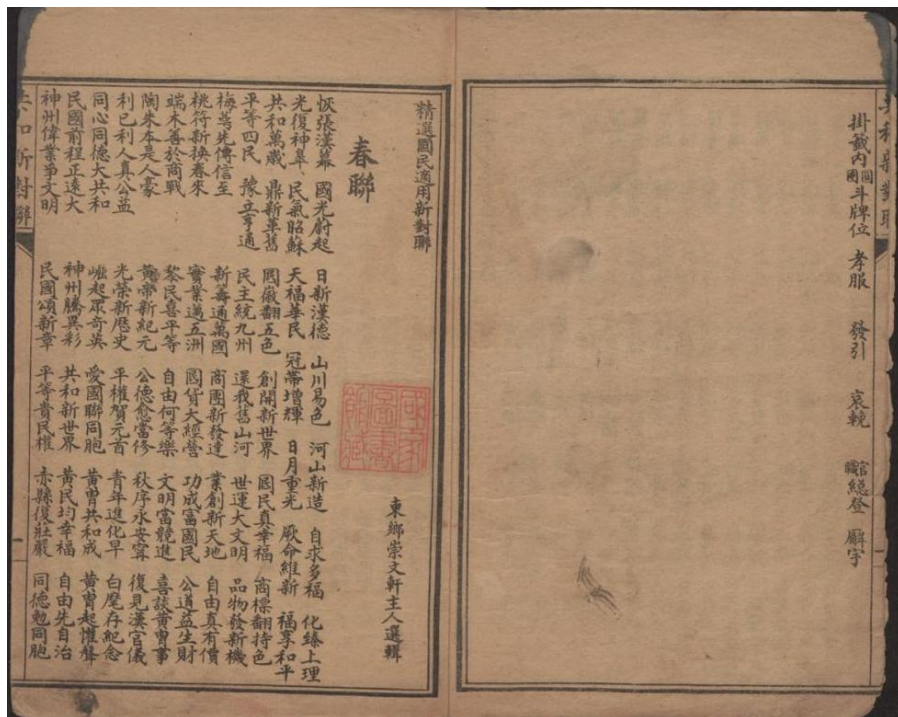 共和新對聯
掛籤內圓圈斗牌位 孝服 發引 哀輓 官職總登 廨宇
精選國民適用新對聯
東鄉崇文軒主人選輯
國家圖書館藏
春聯
恢張漢幕 國光蔚起 日新漢德 山川易色 河山新造 自求多福 化臻上理
光復神皋 民氣昭蘇 天福華民 冠帶增輝 日月重光 厥命維新 福享和平
共和萬歲 鼎新革舊 國徽翻五色 創開新世界 國民真幸福 商標翻特色
平等四民 豫立亨通 民主統九州 還我舊山河 世運大文明 品物發新機
梅萼先傳信至 新籌通萬國 商團新發達 業創新天地 自由真有價
桃符新換春來 實業邁五洲 國貨大經營 功成富國民 公道益生財
端木善於商戰 黎民喜平等 自由何等樂 文明當競進 喜談黃冑事
陶朱本是人豪 黃帝新紀元 公德愈當修 秋序永安寧 復見漢官儀
利己利人真公益 光榮新歷史 平權賀元首 青年進化早 白麾存紀念
同心同德大共和 崛起眾奇英 愛國聯同胞 黃冑共和成 黃冑起懽聲
民國前程正遠大 神州騰異彩 共和新世界 黃民均幸福 自由先自治
神州偉業爭文明 民國頌新章 平等貴民權 赤縣復莊嚴 同德勉同胞
共和新對聯